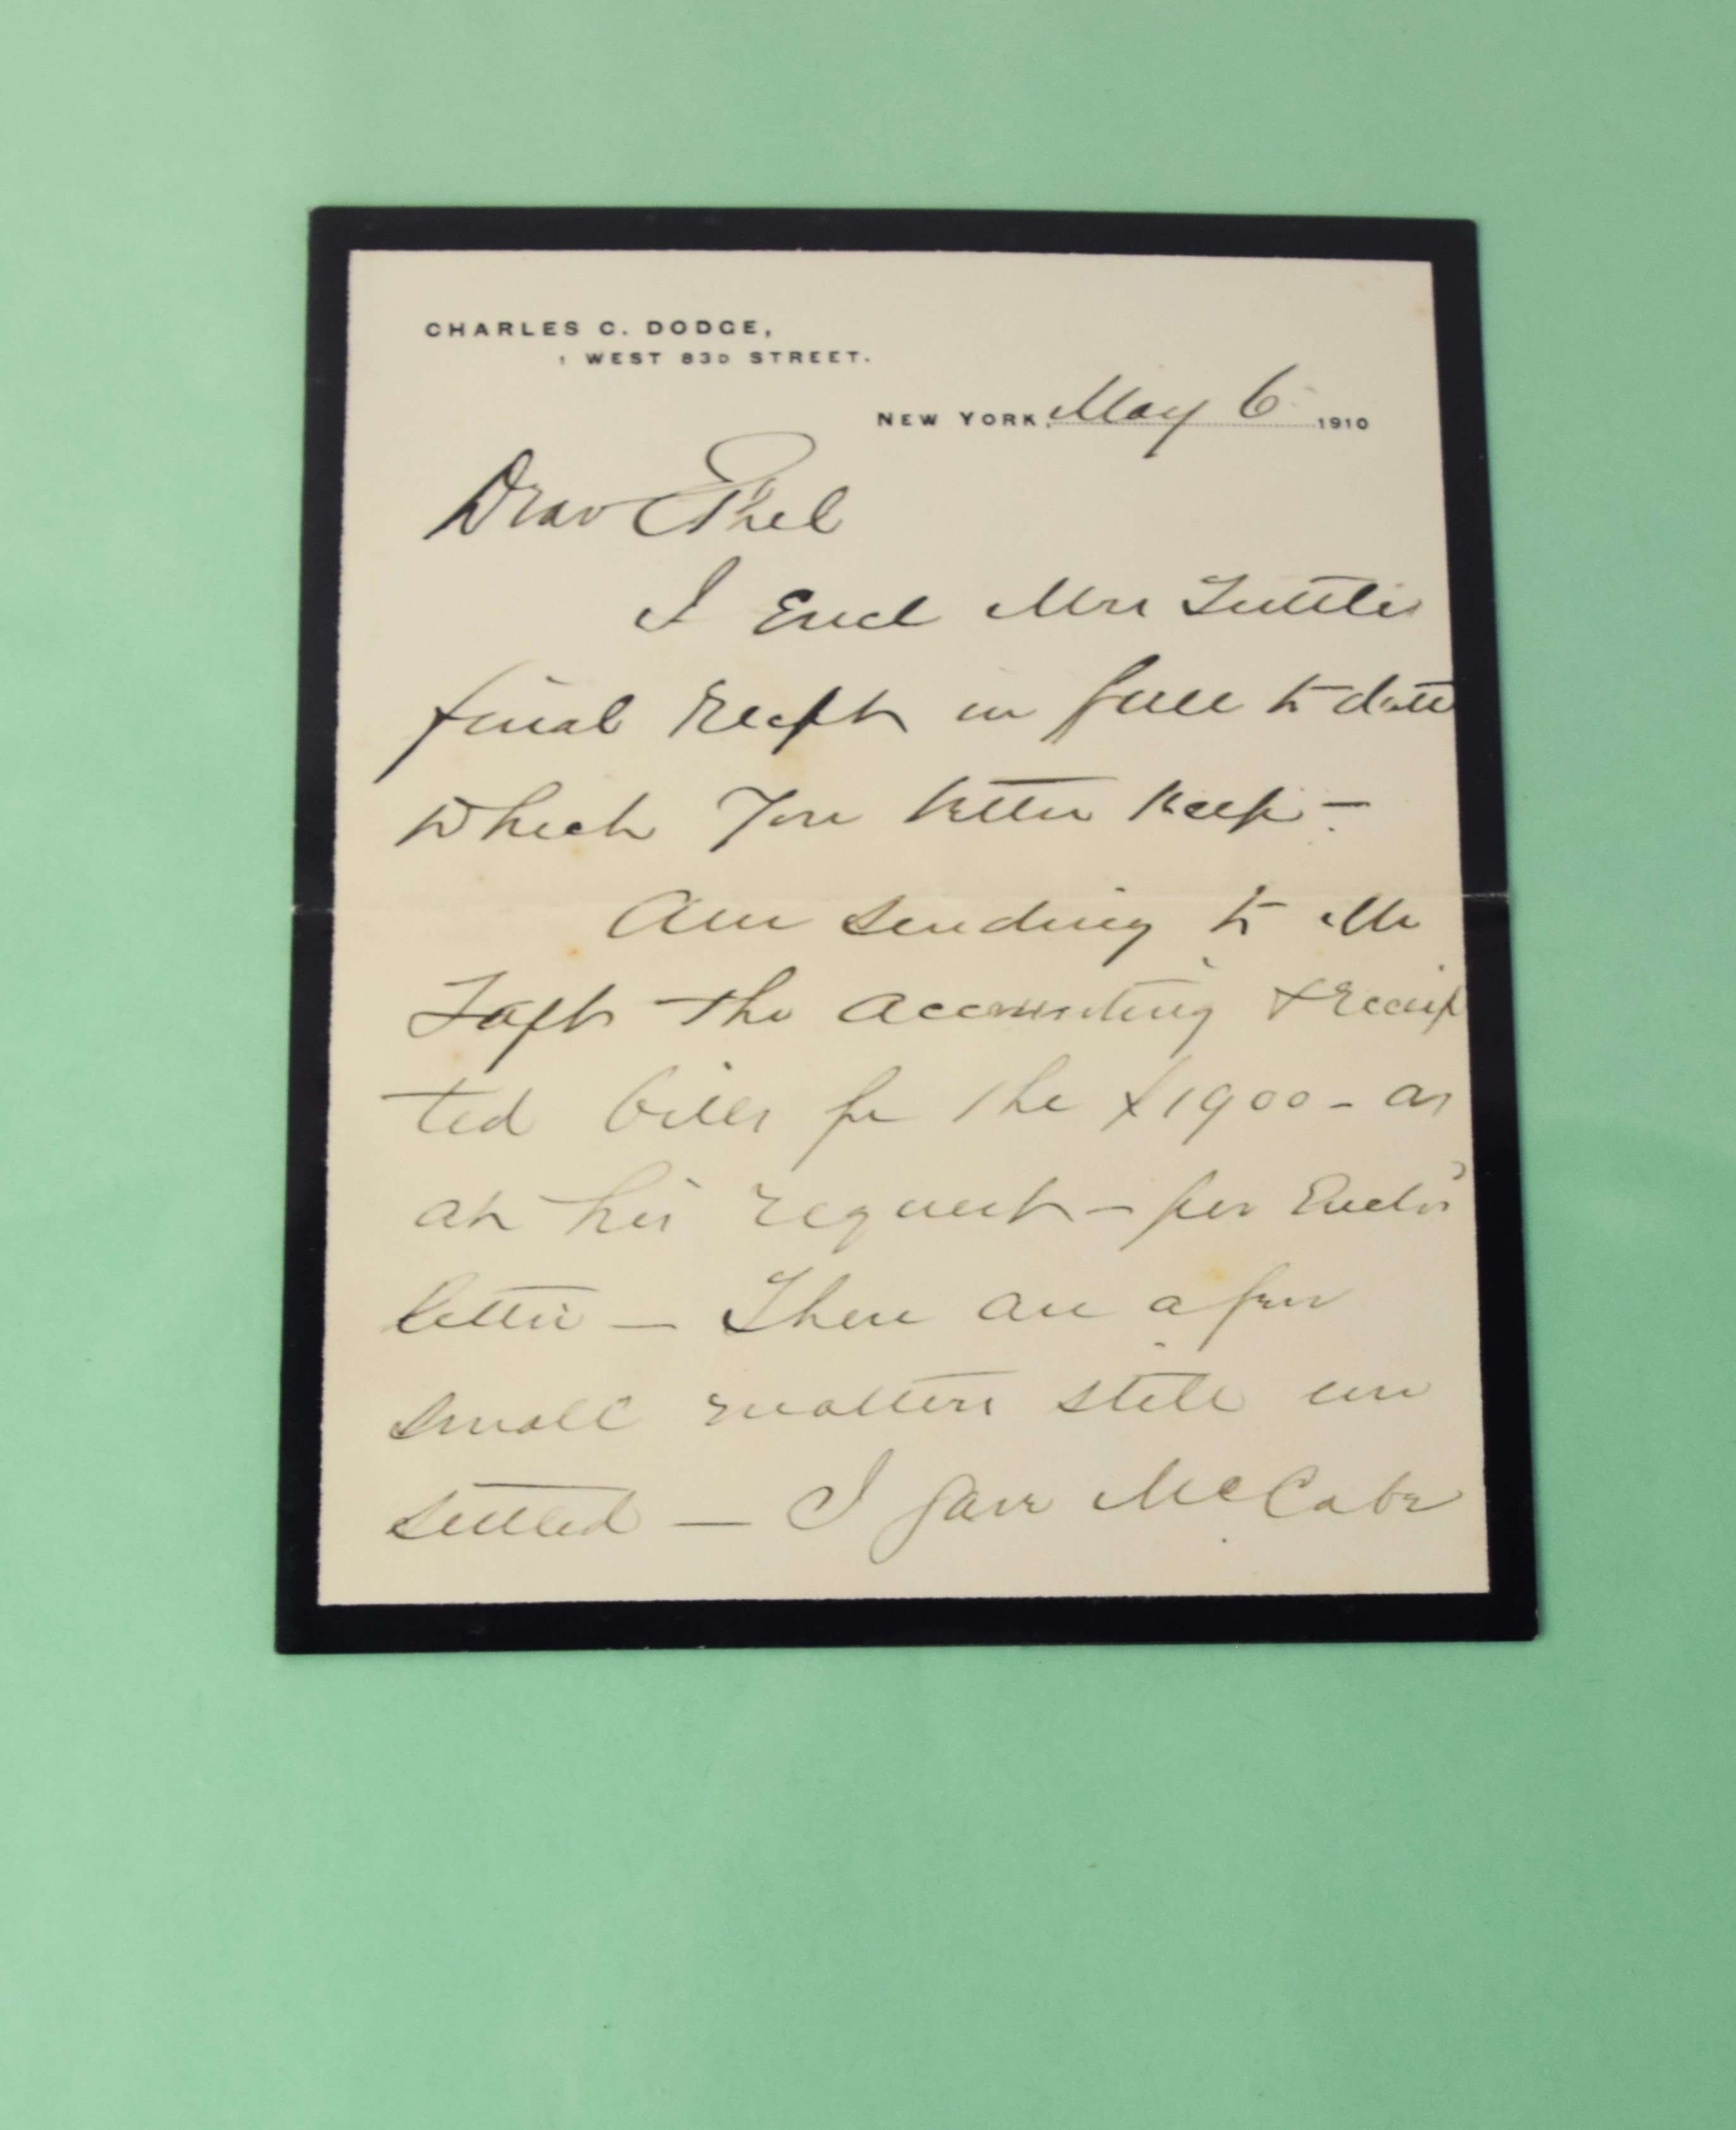 CHARLES C. DODGE,
1 WEST 83D STREET.
NEW YORK, May 6 1910
Dear Ethel
I Encl Mrs Tuttles
final Recpt in full to date
which You better Keep -
Am sending to Mr
Taft the Accounting & Receip
ted bills for the $1900 - as
at his request - per Encl'd
letter - There are a few
small matters still un
settled - I gave McCabe